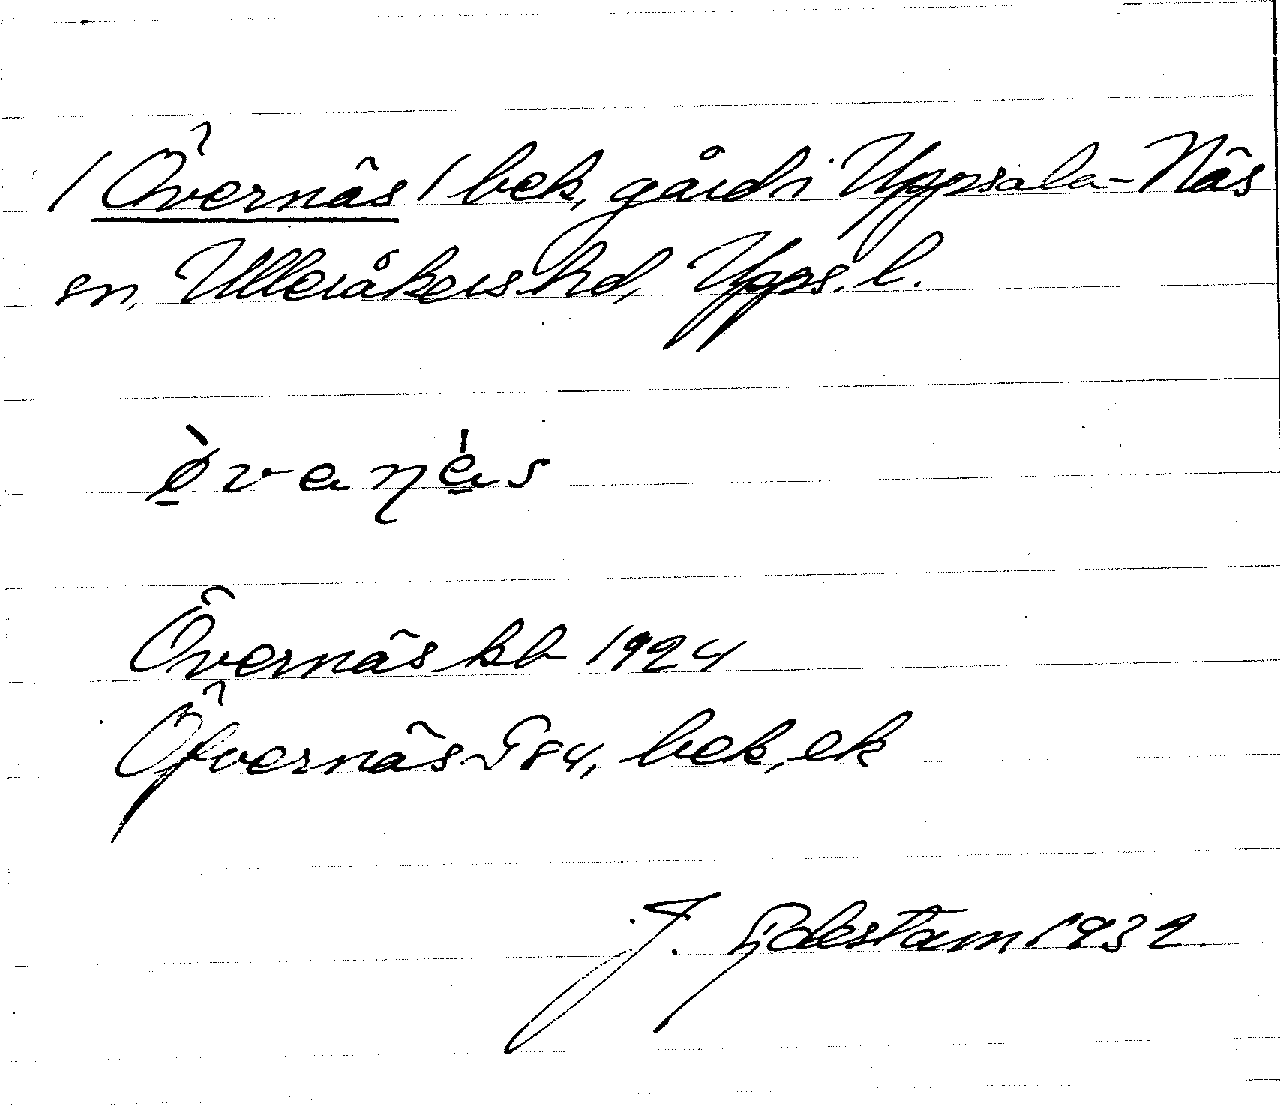 / Övernäs / bek, gård i Uppsala-Näs
sn, Ulleråkers hd, Upps. l.
Övernäs kb 1924
Öfvernäs G84, bek, ek
J. 1932